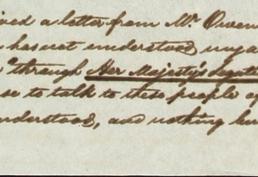 ived a letter from Mr. Owen
has not understood my a
"through Her Majesty's Legat
se to talk to these people of
nderstood, and nothing bu